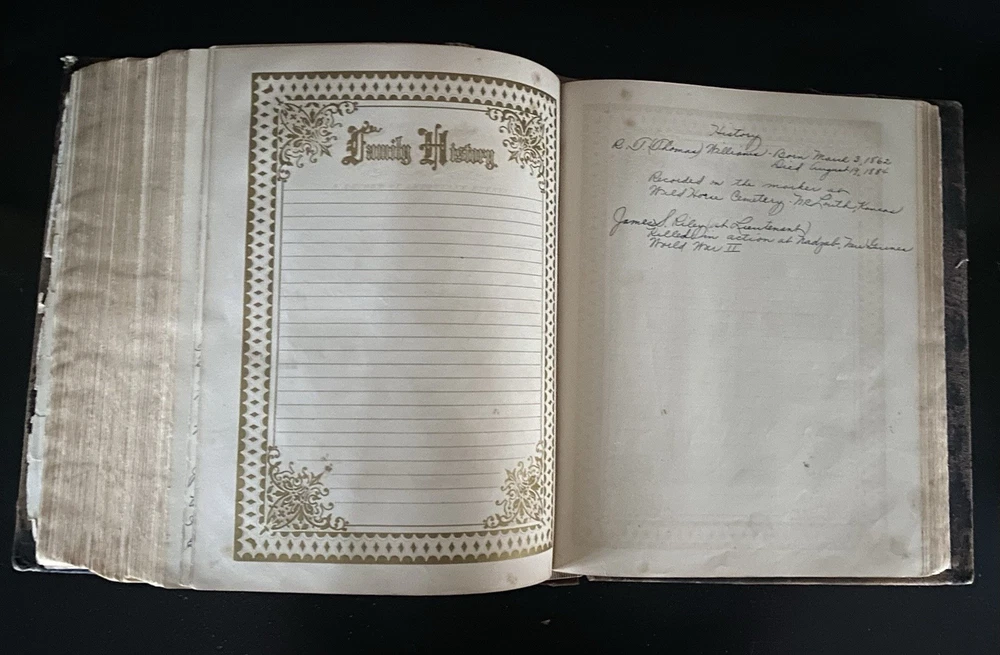 Family History
History
R. T. (Thomas) Williams - Born March 3, 1862
Died August 19, 1884
Recorded on the marker as
Wild Horse Cemetery - McLouth, Kansas
James S. Riley (1st Lieutenant)
Killed in action at Nadzab, New Guinea
World War II